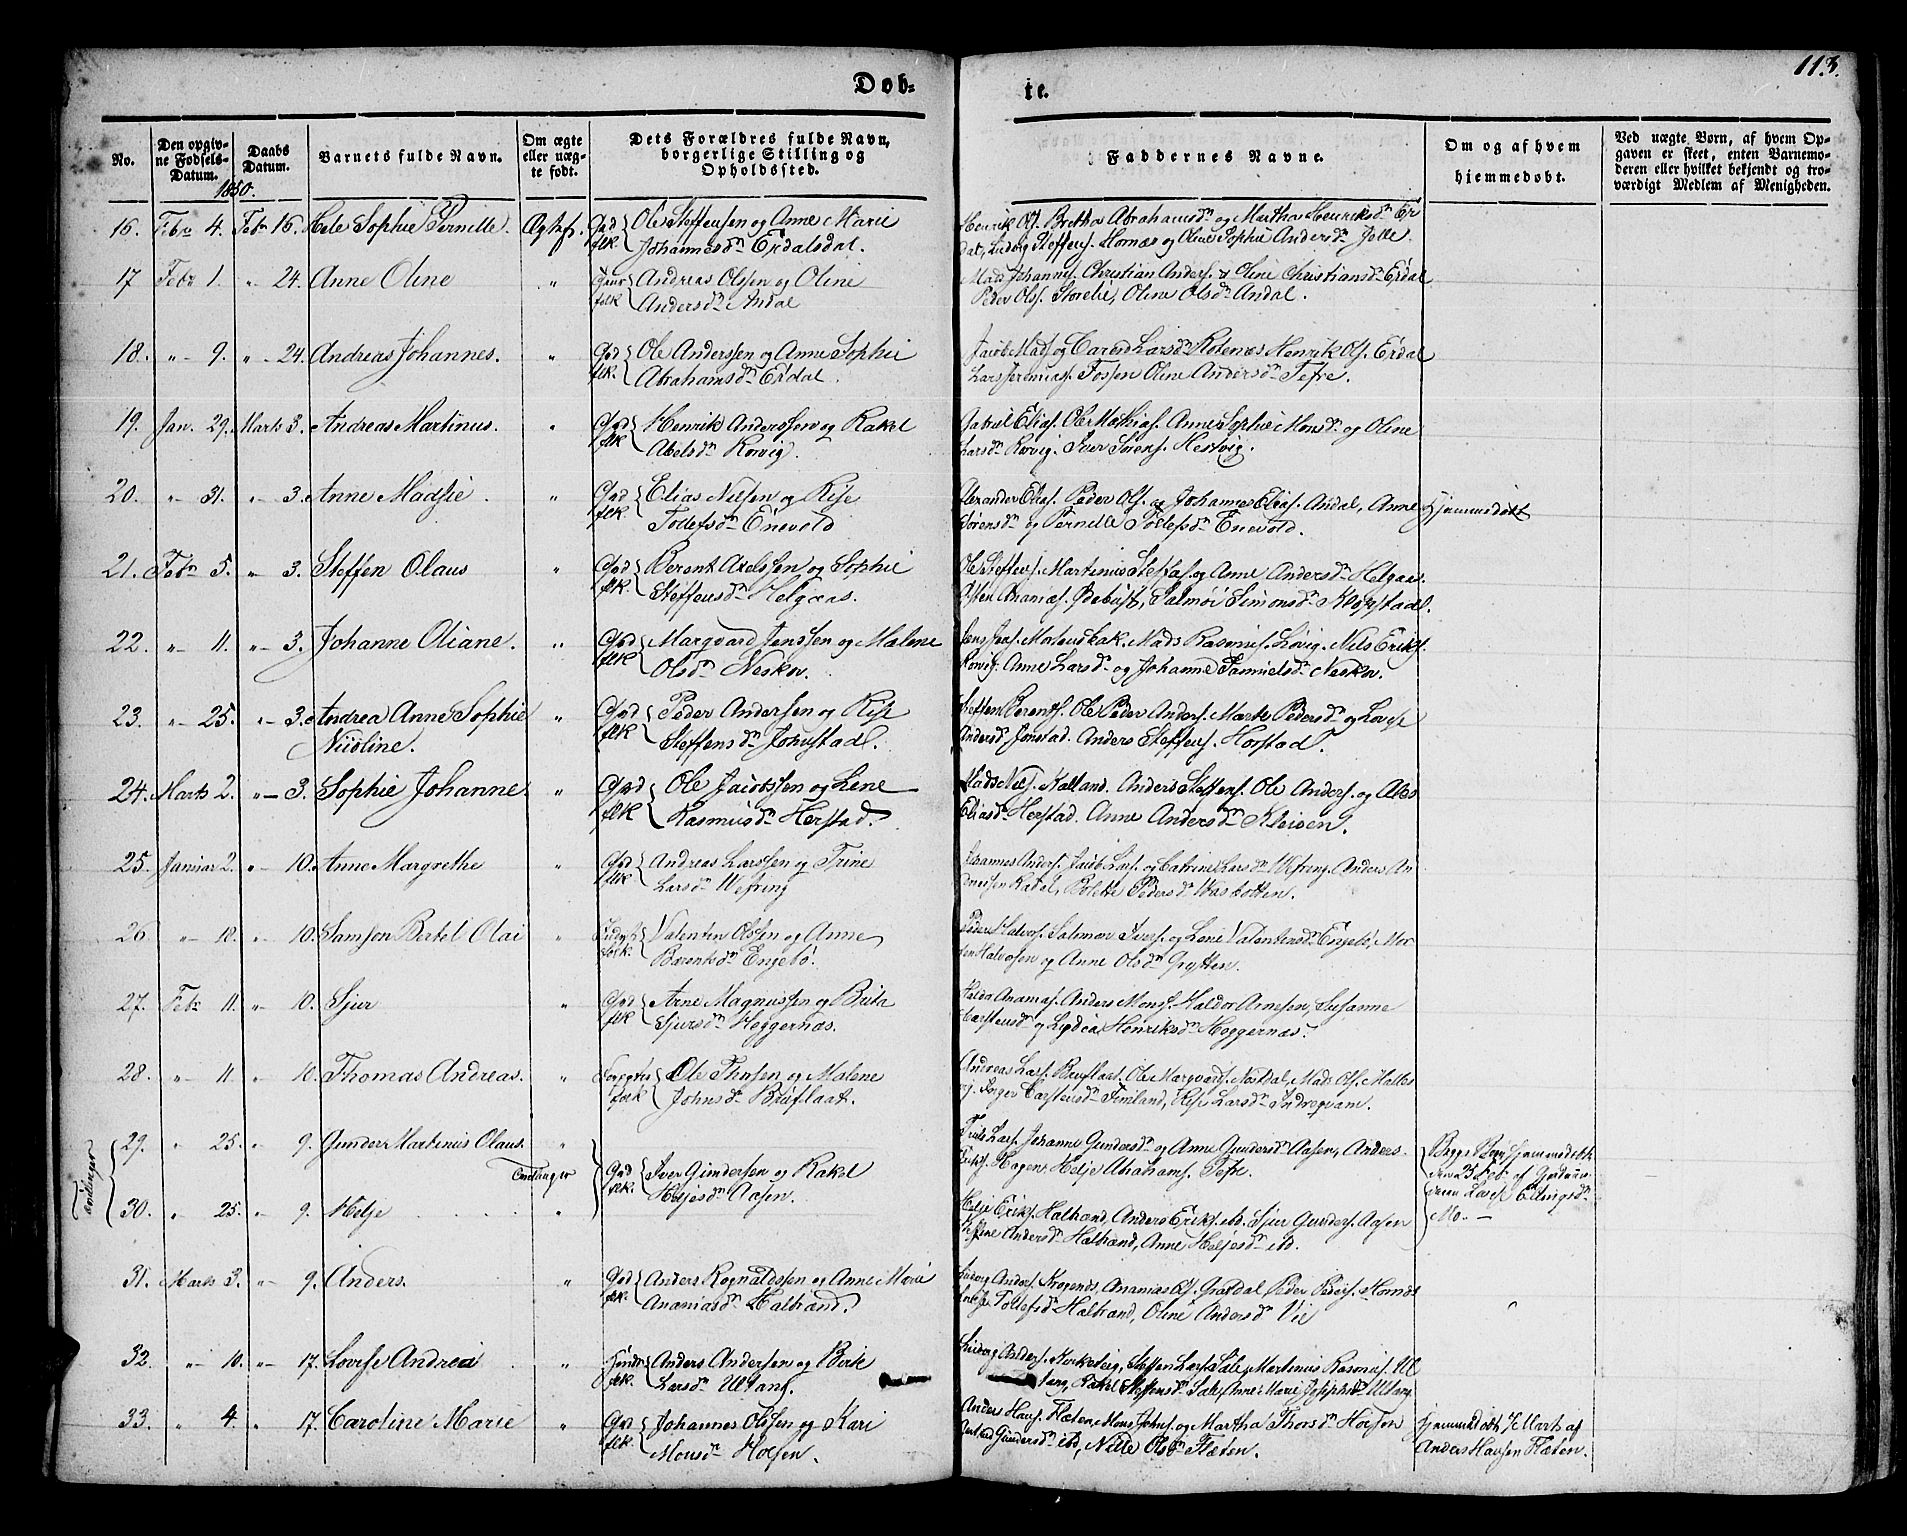 113.
Døb-
te.
No.
Den opgiv-
ne Fødsels-
Datum.
Daabs
Datum.
Barnets fulde Navn.
Om ægte
eller uæg-
te født.
Dets Forældres fulde Navn,
borgerlige Stilling og
Opholdssted.
Faddernes Navne.
Om og af hvem
hjemmedøbt.
Ved uægte Børn, af hvem Op-
gaven er skeet, enten Barnemo-
deren eller hvilket bekjendt og tro-
værdigt Medlem af Menigheden.
1850.
16. Febr 4. Febr 16. Sophie Pernille Ole Steffensen og Anne Marie
Johannesdr Erdalsdal.
Henrik Ols. Bretha Abrahamsdr og Martha Henriksdr Er
dal, Ludvig Steffens. Hornæs og Oline Sophie Andersdr
17 Febr 1. „ 24. Anne Oline „ Andreas Olssen og Oline
folk Andersdr Andal
Mads Johannes. Christian Anders. & Oline Christiansdr Erdal
Peder Ols. Storelie, Oline Olsdr Andal.
18. „ 9. „ 24. Andreas Johannes. „ Grd Ole Anderssen og Anne Sophie
flk. Abrahamsdr Erdal.
Jacob Mads. og Caren Larsdr Rotenæs Henrik Ols. Erdal
Lars Jeremias. Fossen Oline Andersdr Tefre.
19. Jan. 29. Marts 3. Andreas Martinus. „ Grd Henrik Anderssen og Rakel
flk Abelsdr Rørvig.
Gabriel Elias. Ole Mathias. Anne Sophie Monsdr og Oline
Larsdr Rørvig. Iver Sørens. Hestvig.
20. „ 31. „ 3. Anne Madsie. „ Grd Elias Nilsen og Rise
flk. Tollefsdr Enevold
Alexander Elias. Peder Ols. og Johannes Elias. Andal, Anne
Sørensdr og Pernille Tollefsdr Enevold.
Hjemmedøbt
21. Febr 5. „ 3. Steffen Olaus „ Grd Berent Axelssen og Sophie
flk. Steffensdr Helgaas.
Ole Steffens. Martinus Steffas. og Anne Andersdr Helgaas.
Simonsdr Klopstad.
22. „ 11. „ 3. Johanne Oliane. „ Grd Marqvard Jenssen og Malene
flk Olsdr Neskov.
Mads Rasmus. Løvig. Nils Eriks.
Rørvig. Anne Larsdr og Johanne Samuelsdr Neskov.
23. „ 25. „ 3. Andrea Anne Sophie „ Grd Peder Andersen og Rise
Nicoline. flk Steffensdr Jonstad.
Steffen Berents. Ole Peder Anders. Marte Pedersdr og Lovise
Andersd. Jonstad. Anders Steffens. Horstad.
24. Marts 2. „ 3. Sophie Johanne. „ Grd Ole Jacobssen og Lene
flk Rasmusdr Herstad.
Mads Niels. Kalland. Anders Steffens. Ole Anders. og Ales
Eliasdr Herstad. Anne Andersdr Kleiven.
25. Januar 2. „ 10. Anne Margrethe „ Grd Andreas Larssen og Trine
flk. Larsdr Wefring
Johannes Anders. Jacob Lars. og Catrine Larsdr Wefring. Anders An
dreassen Radal, Bolette Pedersdr Wasbotten.
26 „ 18. „ 10. Samson Bertel Olai „ Valentin Olssen og Anne
folk. Barentsdr Engebø.
Peder Halvors. Salamon Ivers. og Lene Valentinsdr Engebø, Mor
ten Halvosen og Anne Olsdr Grytten.
27. Febr 11. „ 10. Sjur „ Grd Arne Magnussen og Brita
flk Sjursdr Heggernæs.
Haldo Anamas. Anders Mons. Haldor Arnesen, Susanne
Carstensd og Lydea Henriksdr Heggernæs.
28. „ 11. „ 10. Thomas Andreas. „ Ole Thissen og Malene
folk Johnsdr Bruflaat.
Andreas Lars. Bruflaat. Ole Marqvards. Norddal, Mads Ols.
Inger Carstensdr Timland, Rise Larsdr Indreqvam.
Tvillinger
29. „ 25. „ 9. Gunder Martinus Olaus. „
Tvillinger Grd Iver Gundersen og Rakel
flk. Heljesdr Aasen.
Johanne Gundersdr og Anne Gundersdr Aasen, Anders
Eriks. Hagen, Helje Abrahams. Tefre.
Begge Børn hjemmedøbt
den 25 Feb. af Gjordmo-
deren Lovise Ellingsdr
Mo. —
30. „ 25. „ 9. Helje „
Helje Eriks. Halbrend, Anders Eriks. ibd. Sjur Gunders. Aasen
Andersdr Halbrend, Anne Heljesdr ibd.
31. Marts 3. „ 9. Anders. „ Grd Anders Rognaldssen og Anne Marie
flk. Ananiasdr Halbrend.
Ludvig Anders. Ananias Ols. Peder Peders. Hornæs
Tollefsdr Halbrend, Oline Andersdr Vie
32. „ 10. „ 17. Lovise Andrea „ Anders Andersen og Birte
flk. Larsdr Ullang.
Ludvig Anders. Steffen Lars. Sale, Martinus Rasmus. Ul
lang, Rakel Steffensdr Sale, Anne Marie Josephsdr Ullang
33. „ 4. „ 17. Caroline Marie „ Grd Johannes Olssen og Kari
flk. Monsdr Hofsen.
Anders Hans. Flæten, Mons Johns. og Martha Thorsdr Hofsen
Gundersdr ibd, Nille Olsdr Flæten.
Hjemmedøbt 7 Marts af
Anders Hansen Flæten.